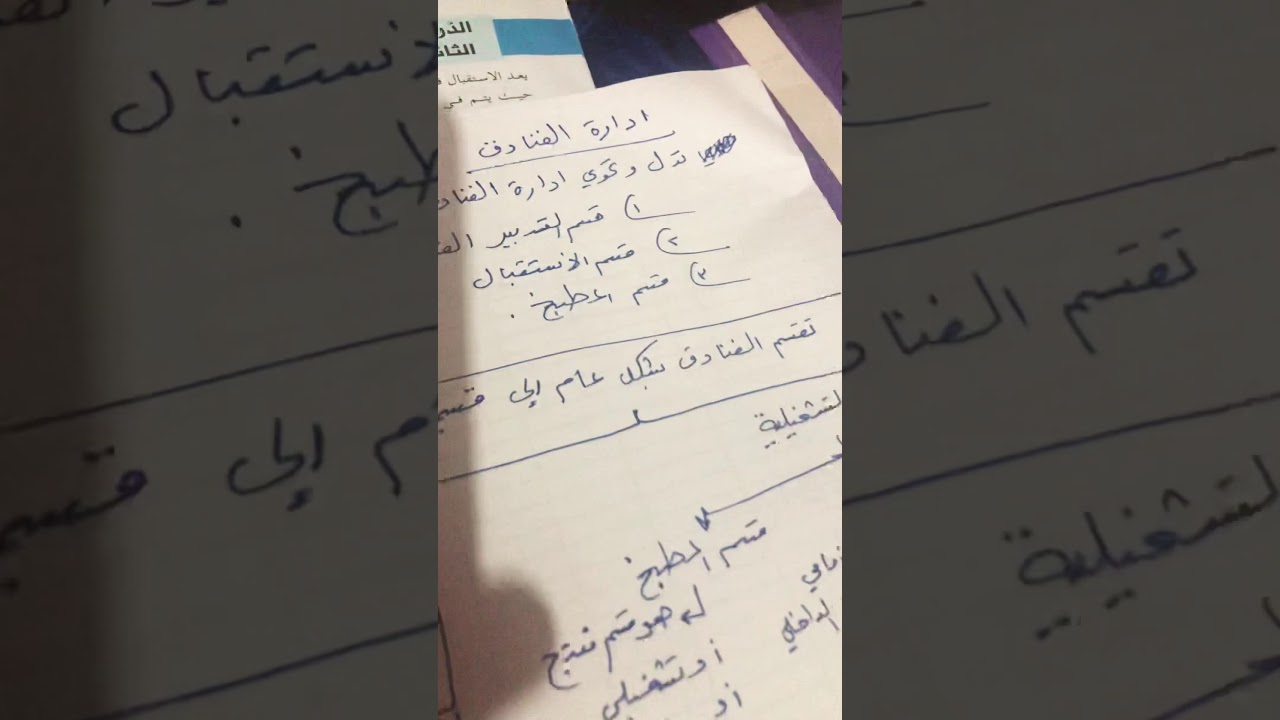 الثا
بعد الاستقبال
حيث يتم في
ادارة الفنادق
تدل وتحوي ادارة الفناد
١) قسم التدبير
٢) قسم الاستقبال
٣) قسم المطبخ.
تقسم الفنادق بشكل عام إلى
لتشغيلية
قسم المطبخ
هو قسم منتج
أو تشغيلي
الداخلي